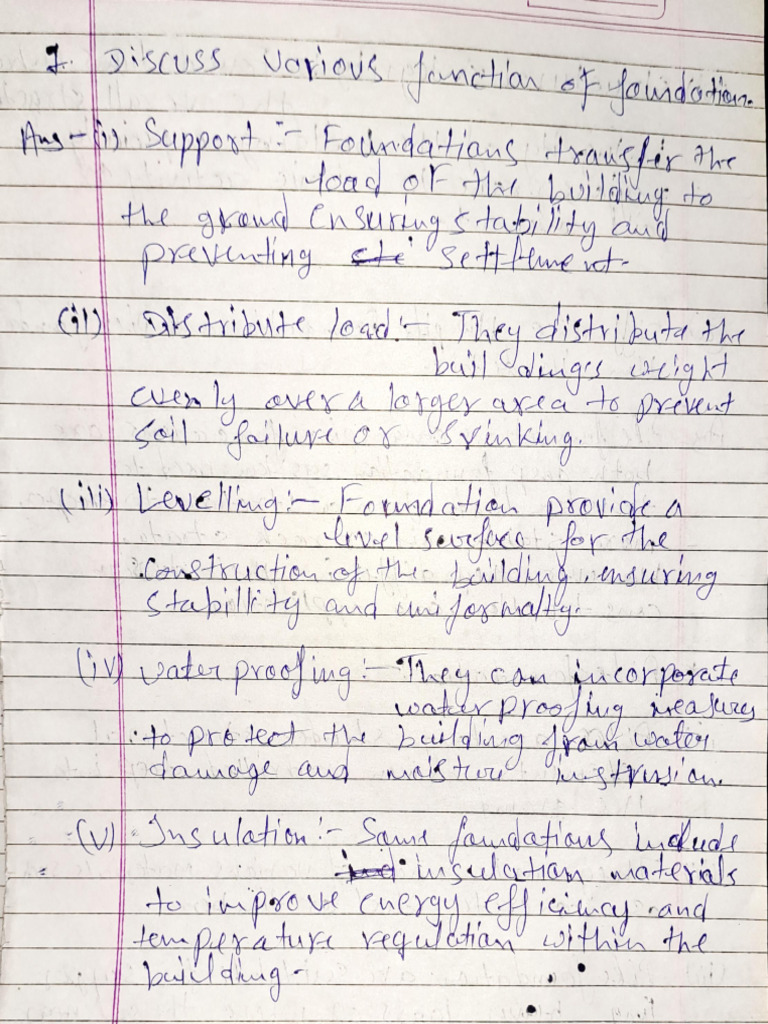 1. Discuss various function of foundation.
Ans - (i) Support :- Foundations transfer the
load of the building to
the ground ensuring stability and
preventing settlement.
(ii) Distribute load :- They distribute the
buildings weight
evenly over a larger area to prevent
soil failure or srinking.
(iii) Levelling :- Foundation provide a
level surface for the
construction of the building, ensuring
stabillity and uniformalty.
(iv) water proofing :- They can incorporate
waterproofing measures
to protect the building from water
damage and moisture instrusion.
(v) Insulation :- Some foundations include
insulation materials
to improve energy efficiency and
temperature regulation within the
building -